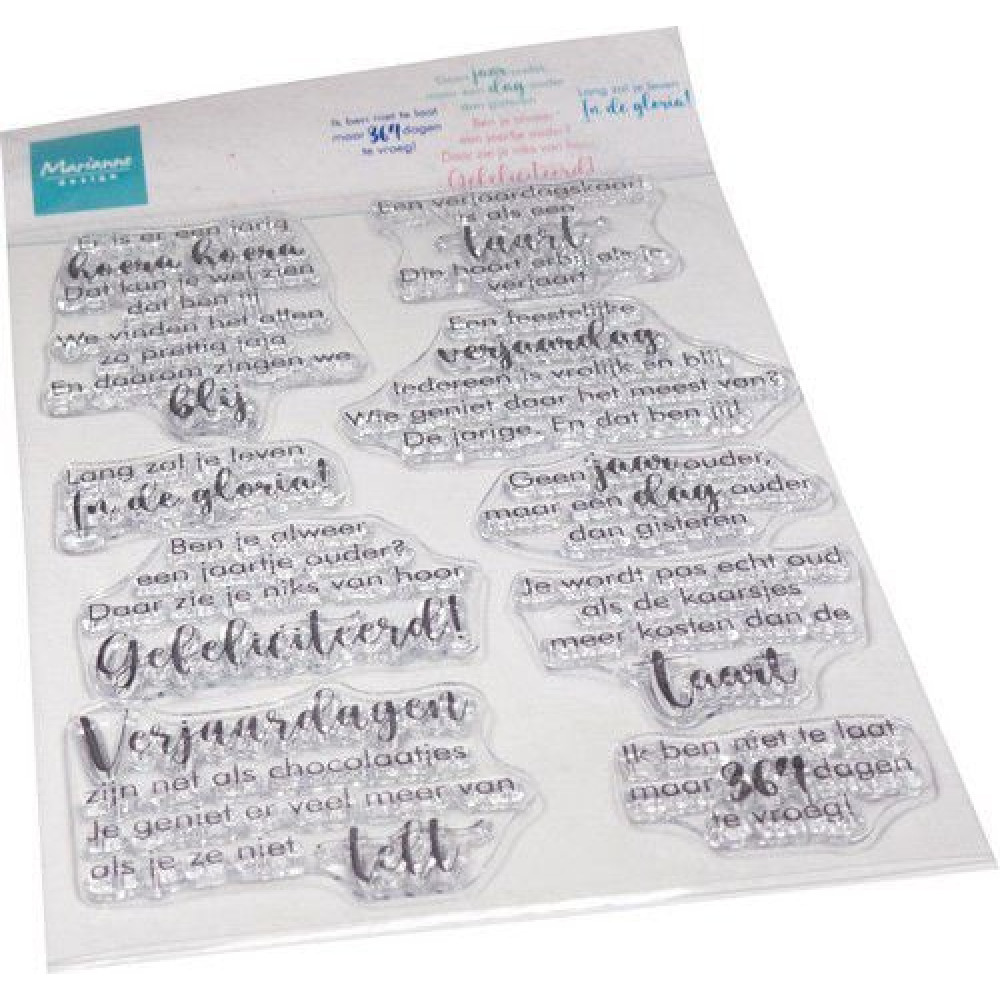 Geen jaar ouder,
maar een dag ouder
dan gisteren
Lang zal je leven
In de gloria!
Ik ben niet te laat
maar 364 dagen
te vroeg!
Ben je alweer
een jaartje ouder?
Daar zie je niks van hoor
Gefeliciteerd!
Marianne
DESIGN
Er is er een jarig
hoera hoera
Dat kun je wel zien
dat ben jij
We vinden het allen
zo prettig jaja
En daarom zingen we
blij
Een verjaardagskaart
is als een
taart
Die hoort erbij als je
verjaart
Een feestelijke
verjaardag
Iedereen is vrolijk en blij
Wie geniet daar het meest van?
De jarige. En dat ben jij!
Lang zal je leven
In de gloria!
Geen jaar ouder,
maar een dag ouder
dan gisteren
Ben je alweer
een jaartje ouder?
Daar zie je niks van hoor
Gefeliciteerd!
Je wordt pas echt oud
als de kaarsjes
meer kosten dan de
taart
Verjaardagen
zijn net als chocolaatjes
Je geniet er veel meer van
als je ze niet telt
Ik ben niet te laat
maar 364 dagen
te vroeg!